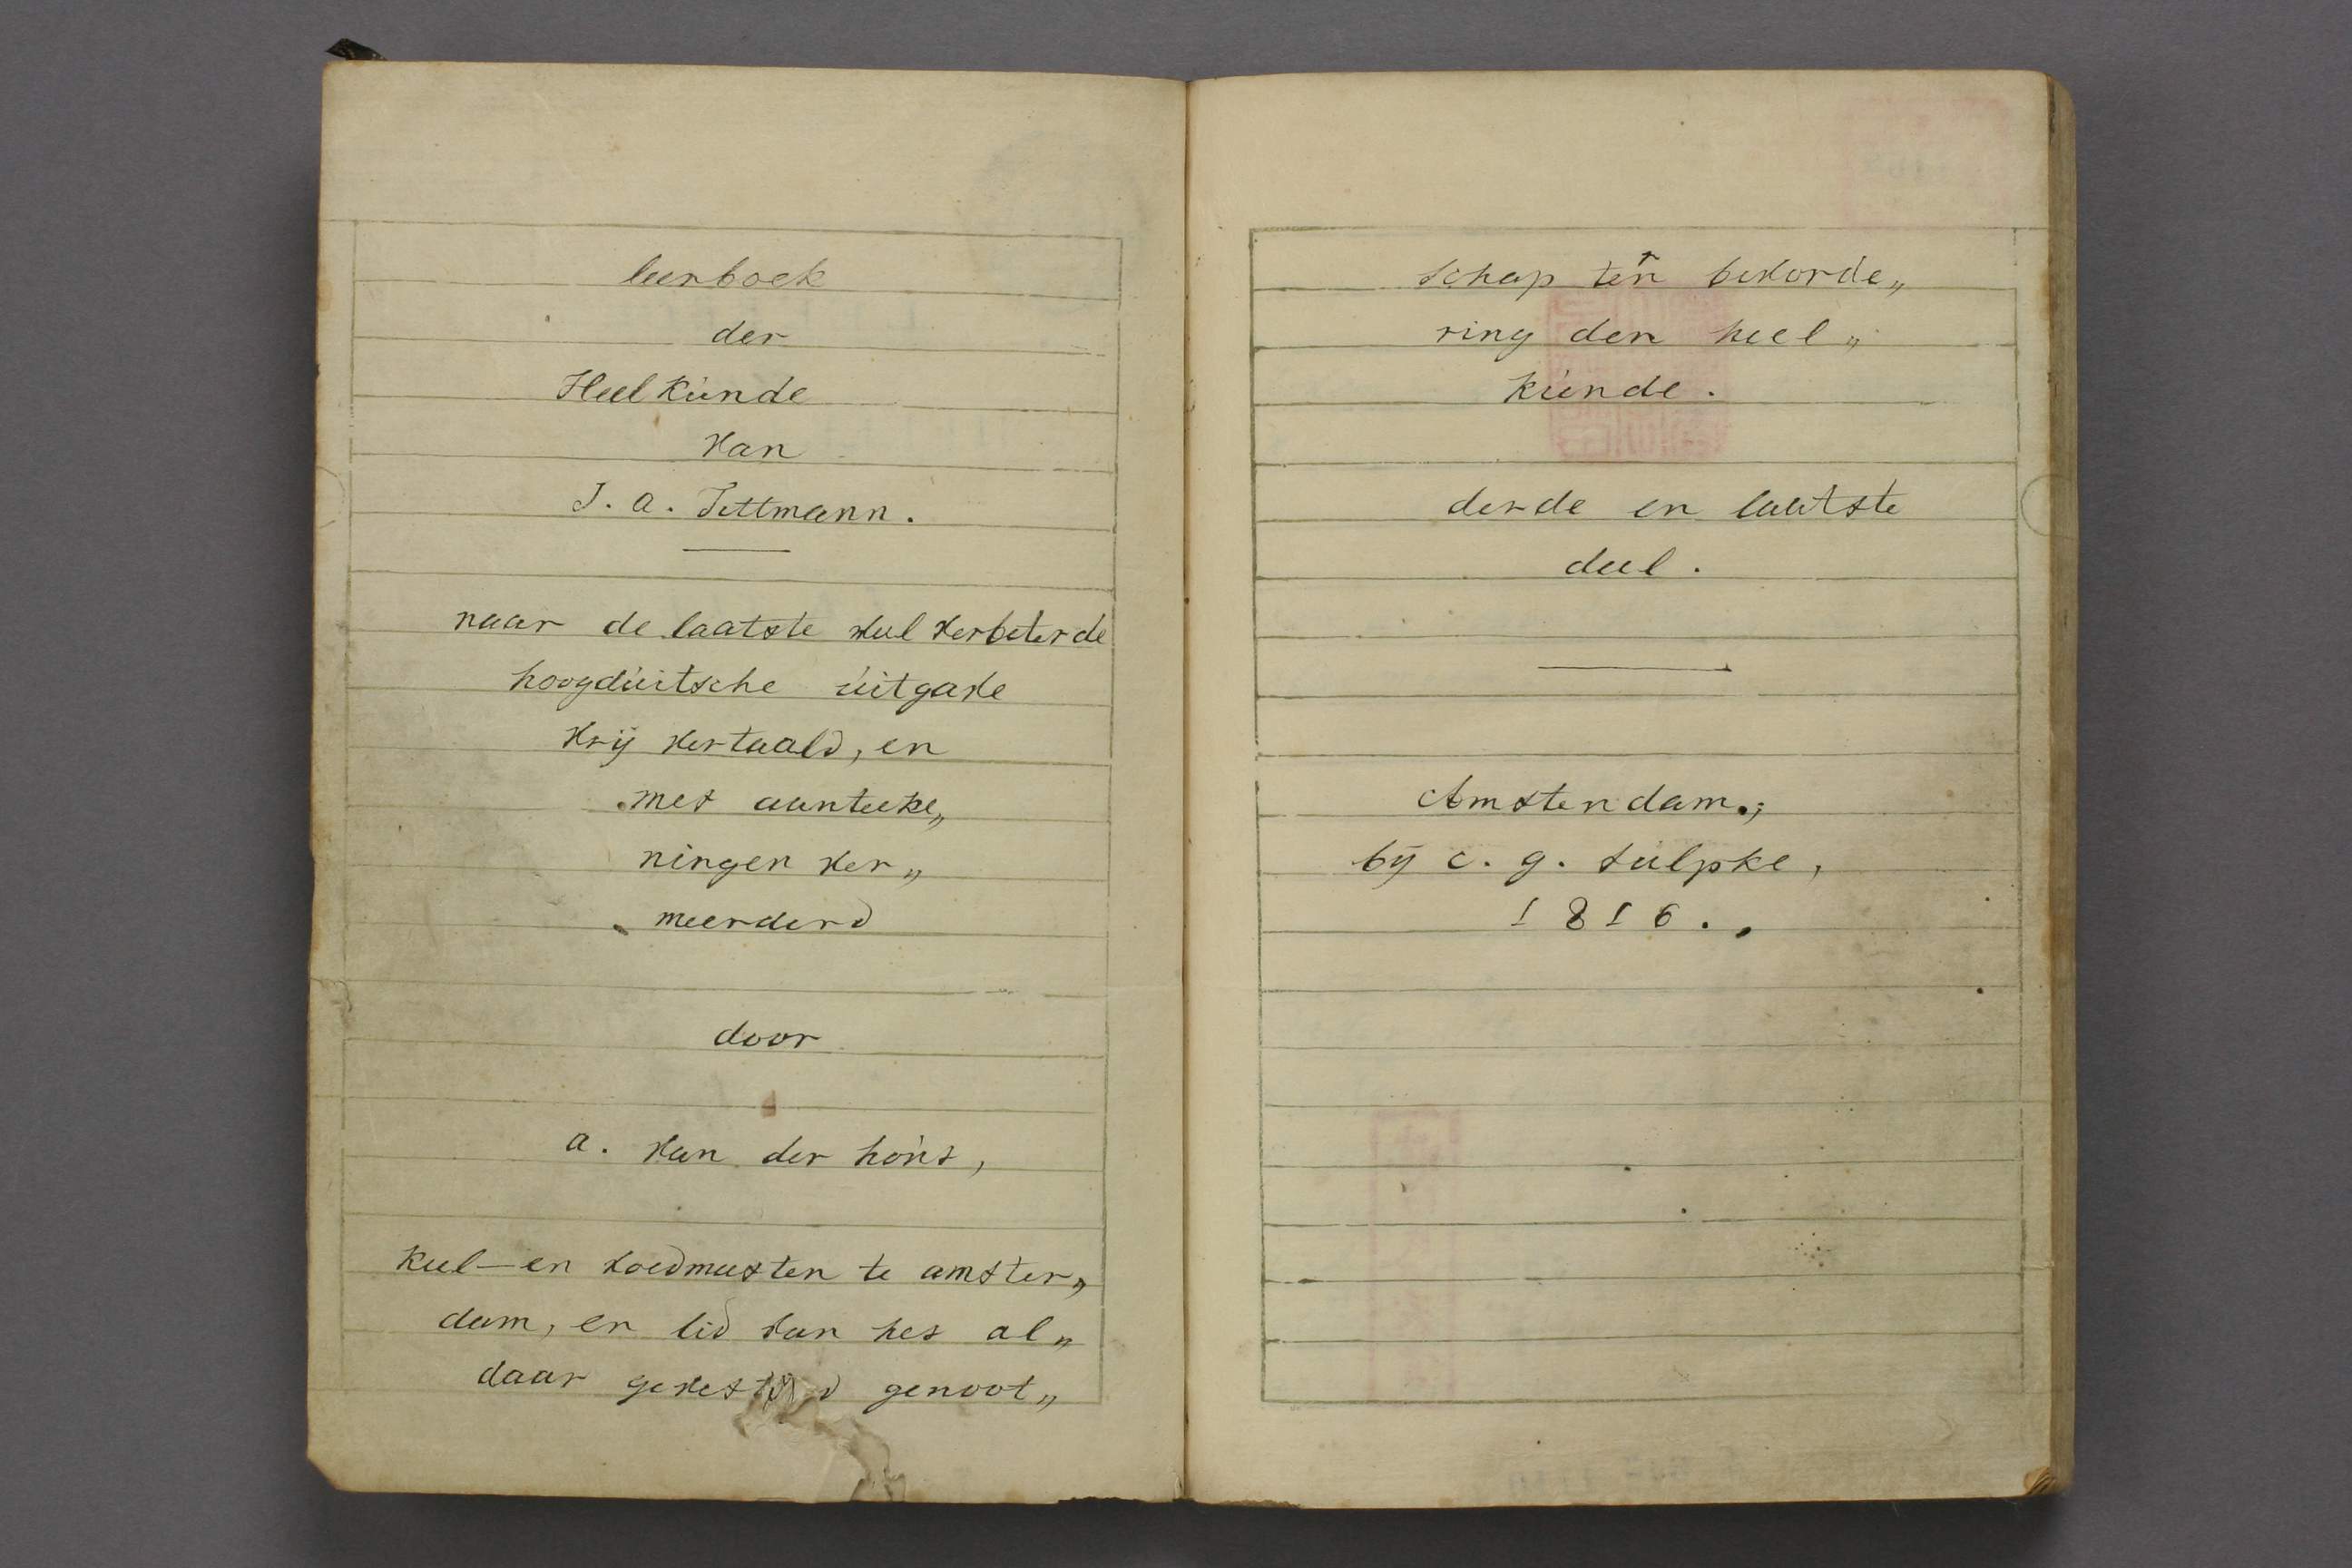 leerboek
der
Heelkúnde
van
J. a. Tittmann.
naar de laatste veel verbeterde
hoogdúitsche úitgave
vrij vertaald, en
met aanteeke„
ningen ver„
meerderd
door
a. van der hoút,
Keel-en vroedmeester te amster„
dam, en lid van het al„
daar gevestigd genoot„
schap ter bevorde„
ring der heel„
kúnde.
derde en laatste
deel.
Amsterdam,
bij c. g. súlpke,
1816.